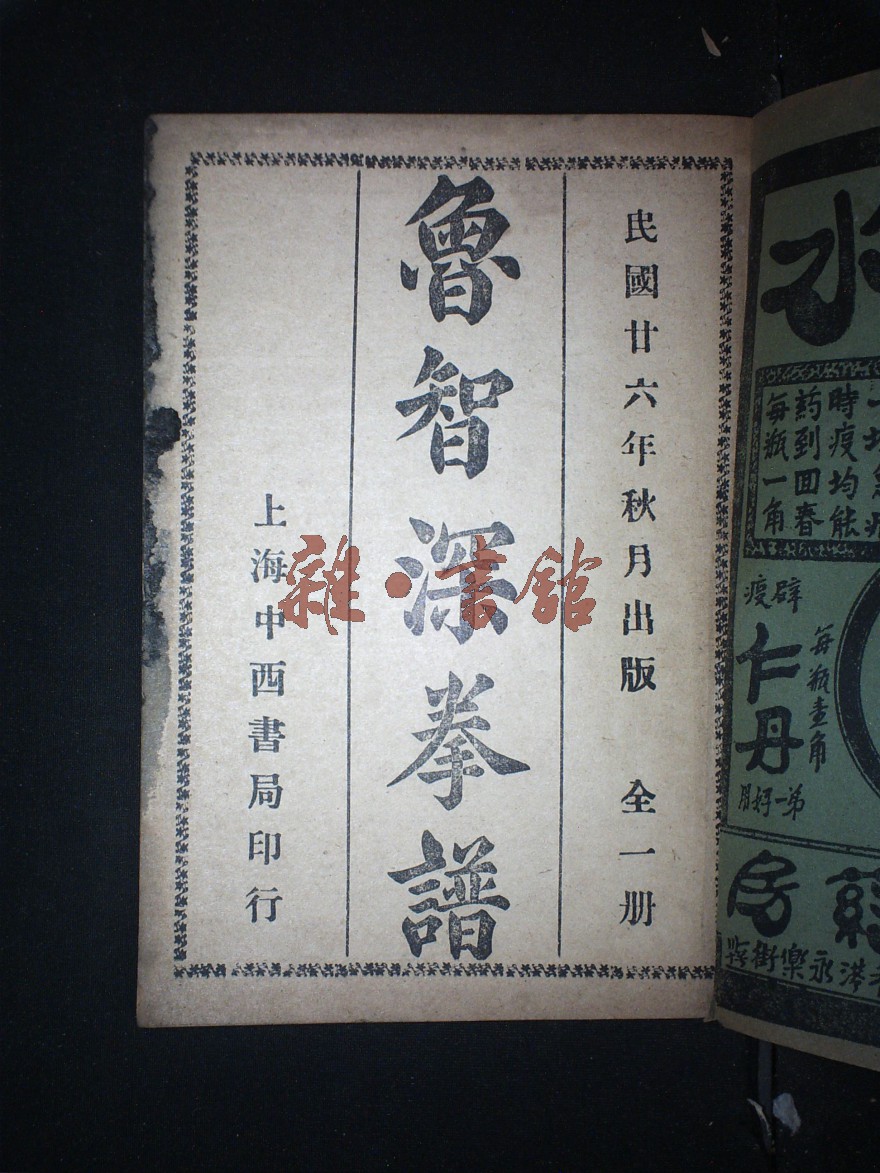 民國廿六年秋月出版 全一册
魯智深拳譜
上海中西書局印行
雜·書館
水
時疫均能
药到回春
每瓶一角
辟疫
仁丹
每瓶壹角
第一好用
房
永樂街